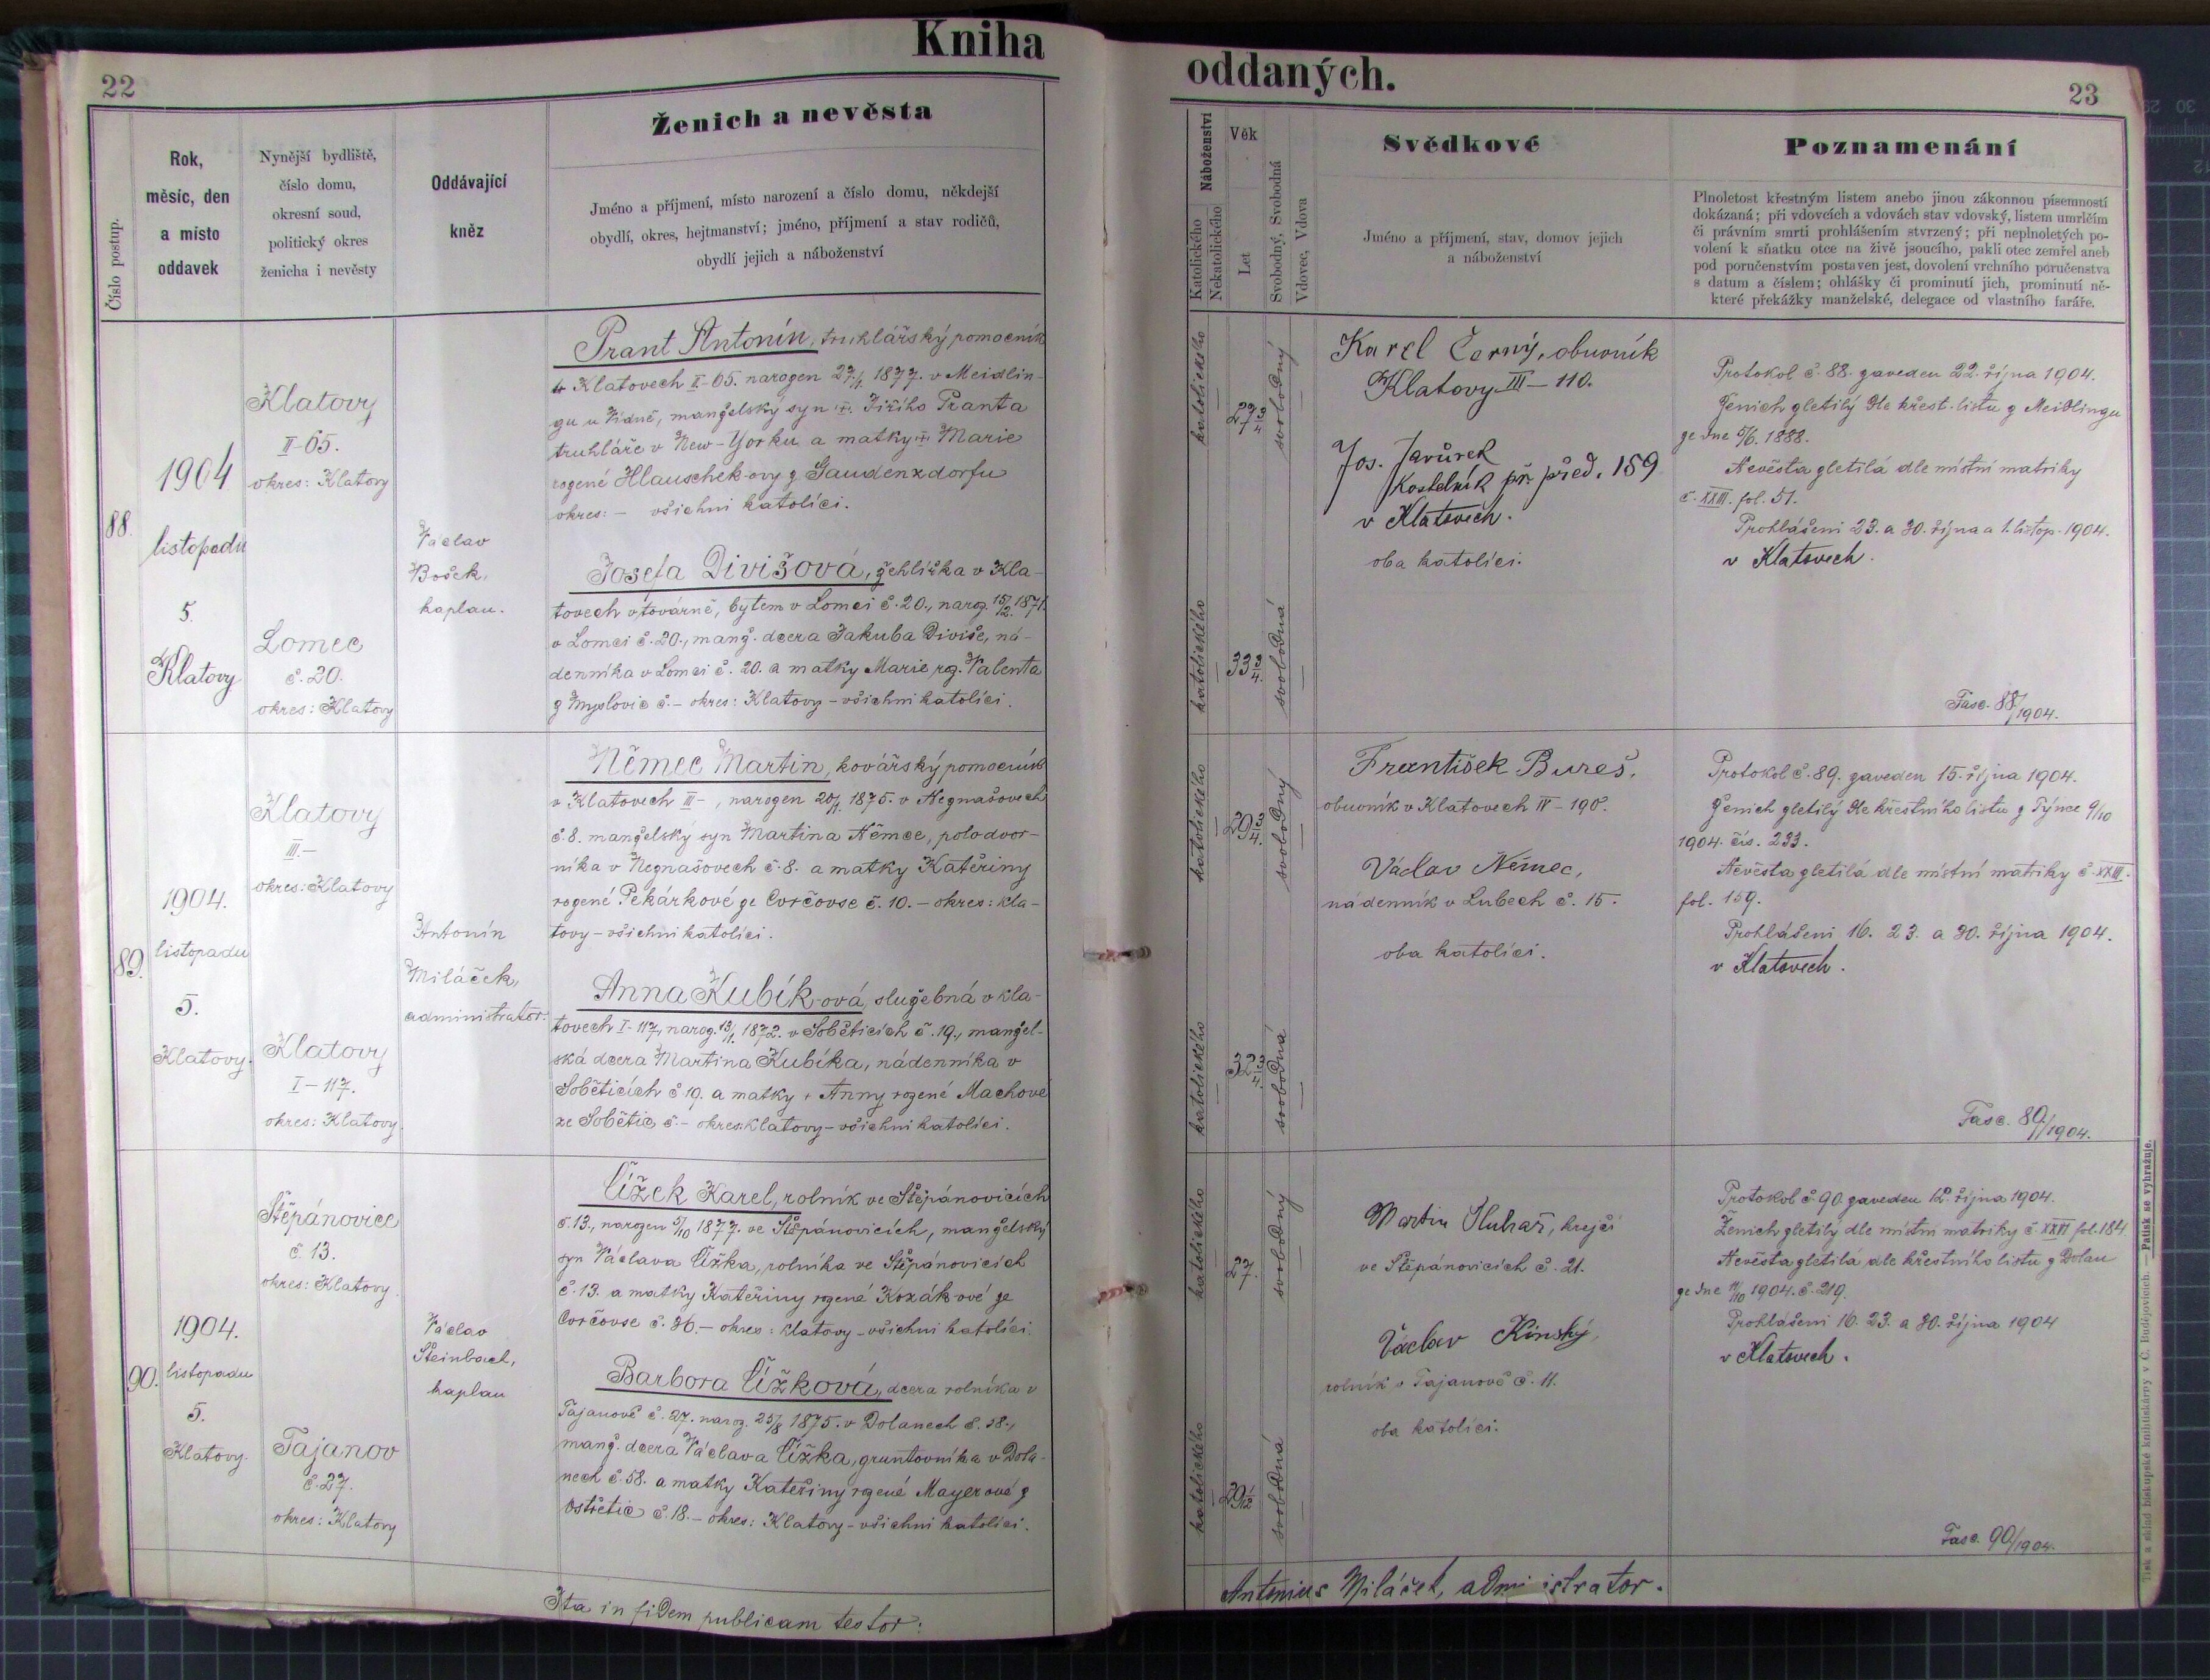 22
Kniha
Číslo postup.
Rok,
měsíc, den
a místo
oddavek
Nynější bydliště,
číslo domu,
okresní soud,
politický okres
ženicha i nevěsty
Oddávající
kněz
Ženich a nevěsta
Jméno a příjmení, místo narození a číslo domu, někdejší
obydlí, okres, hejtmanství; jméno, příjmení a stav rodičů,
obydlí jejich a náboženství
88.
1904
listopadu
5.
Klatovy
Klatovy
II-65.
okres: Klatovy
Lomec
č. 20.
okres: Klatovy
Václav
Bošek,
kaplan.
Prant Antonín, truhlářský pomocník
v Klatovech II-65. narozen 27/1 1877. v Meidlin-
gu u Vídně, manželský syn Jiřího Pranta
truhláře v New-Yorku a matky Marie
rozené Hlauschek-ovy z Gaudenzdorfu
okres: – všichni katolíci.
Josefa Divišová, žehlířka v Kla-
tovech v továrně, bytem v Lomci č. 20., naroz. 15/2. 1871.
v Lomci č. 20., manž. dcera Jakuba Diviše, ná-
denníka v Lomci č. 20. a matky Marie roz. Valenta
z Myslovic č. – okres: Klatovy – všichni katolíci.
89.
1904.
listopadu
5.
Klatovy.
Klatovy
III. –
okres: Klatovy
Klatovy
I – 117.
okres: Klatovy.
Antonín
Miláček,
administrátor.
Němec Martin, kovářský pomocník
v Klatovech III – , narozen 20/1 1875. v Neznašovech
č. 8. manželský syn Martina Němce, polodvor-
níka v Neznašovech č. 8. a matky Kateřiny
rozené Pekárkové ze Cvrčovse č. 10. – okres: Kla-
tovy – všichni katolíci.
Anna Kubík-ová, služebná v Kla-
tovech I-117, naroz. 13/1. 1872. v Soběticích č. 19., manžel-
ská dcera Martina Kubíka, nádenníka v
Soběticích č. 19. a matky + Anny rozené Machové
ze Sobětic, č. – okres: Klatovy – všichni katolíci.
90.
1904.
listopadu
5.
Klatovy.
Štěpánovice
č. 13.
okres: Klatovy.
Tajanov
č. 27.
okres: Klatovy
Václav
Steinbach,
kaplan
Čížek Karel, rolník ve Štěpánovicích
č. 13., narozen 5/10 1877. ve Štěpánovicích, manželský
syn Václava Čížka, rolníka ve Štěpánovicích
č. 13. a matky Kateřiny rozené Kozák-ové ze
Cvrčovse č. 36. – okres: Klatovy – všichni katolíci.
Barbora Čížková, dcera rolníka v
Tajanově č. 27. naroz. 25/8 1875. v Dolanech č. 58.,
manž. dcera Václava Čížka, gruntovníka v Dola-
nech č. 58. a matky Kateřiny rozené Mayerové z
Ostřetic č. 18. – okres: Klatovy – všichni katolíci.
Ita in fidem publicam testor:
oddaných.
23
Náboženství
Katolického
Nekatolického
Věk
Let
Svobodný, Svobodná
Vdovec, Vdova
Svědkové
Jméno a příjmení, stav, domov jejich
a náboženství
Poznamenání
Plnoletost křestným listem anebo jinou zákonnou písemností
dokázaná; při vdovcích a vdovách stav vdovský, listem umrlčím
či právním smrti prohlášením stvrzený; při neplnoletých po-
volení k sňatku otce na živě jsoucího, pakli otec zemřel aneb
pod poručenstvím postaven jest, dovolení vrchního poručenstva
s datum a číslem; ohlášky či prominutí jich, prominutí ně-
které překážky manželské, delegace od vlastního faráře.
katolického
27 3/4
svobodný
katolického
33 3/4.
svobodná
Karel Černý, obuvník
Klatovy III – 110.
Jos. Javůrek
Kostelník pr. před. 159
v Klatovech.
oba katolíci.
Protokol č. 88. zaveden 22. října 1904.
Ženich zletilý dle křest. listu z Meidlingu
ze dne 5/6. 1888.
Nevěsta zletilá dle místní matriky
č. XXIII. fol. 51.
Prohlášeni 23. a 30. října a 1. listop. 1904.
v Klatovech.
Fasc. 88/1904.
katolického
29 3/4.
svobodný
katolického
32 3/4.
svobodná
František Bureš,
obuvník v Klatovech IV – 190.
Václav Němec,
nádenník v Lubech č. 15.
oba katolíci.
Protokol č. 89. zaveden 15. října 1904.
Ženich zletilý dle křestního listu z Týnce 9/10
1904. čís. 233.
Nevěsta zletilá dle místní matriky č. XXIII.
fol. 159.
Prohlášeni 16. 23. a 30. října 1904.
v Klatovech.
Fasc. 89/1904.
katolického
27.
svobodný
katolického
29 1/2
svobodná
Martin Sluhař, krejčí
ve Štěpánovicích č. 21.
Václav Kinský,
rolník v Tajanově č. 11.
oba katolíci.
Protokol č. 90. zaveden 12. října 1904.
Ženich zletilý dle místní matriky č. XXVI fol. 184.
Nevěsta zletilá dle křestního listu z Dolan
ze dne 11/10 1904. č. 219.
Prohlášeni 16. 23. a 30. října 1904
v Klatovech.
Fasc. 90/1904.
Antonius Miláček, administrator.
Tisk a sklad biskupské knihtiskárny v Č. Budějovicích. — Patisk se vyhražuje.